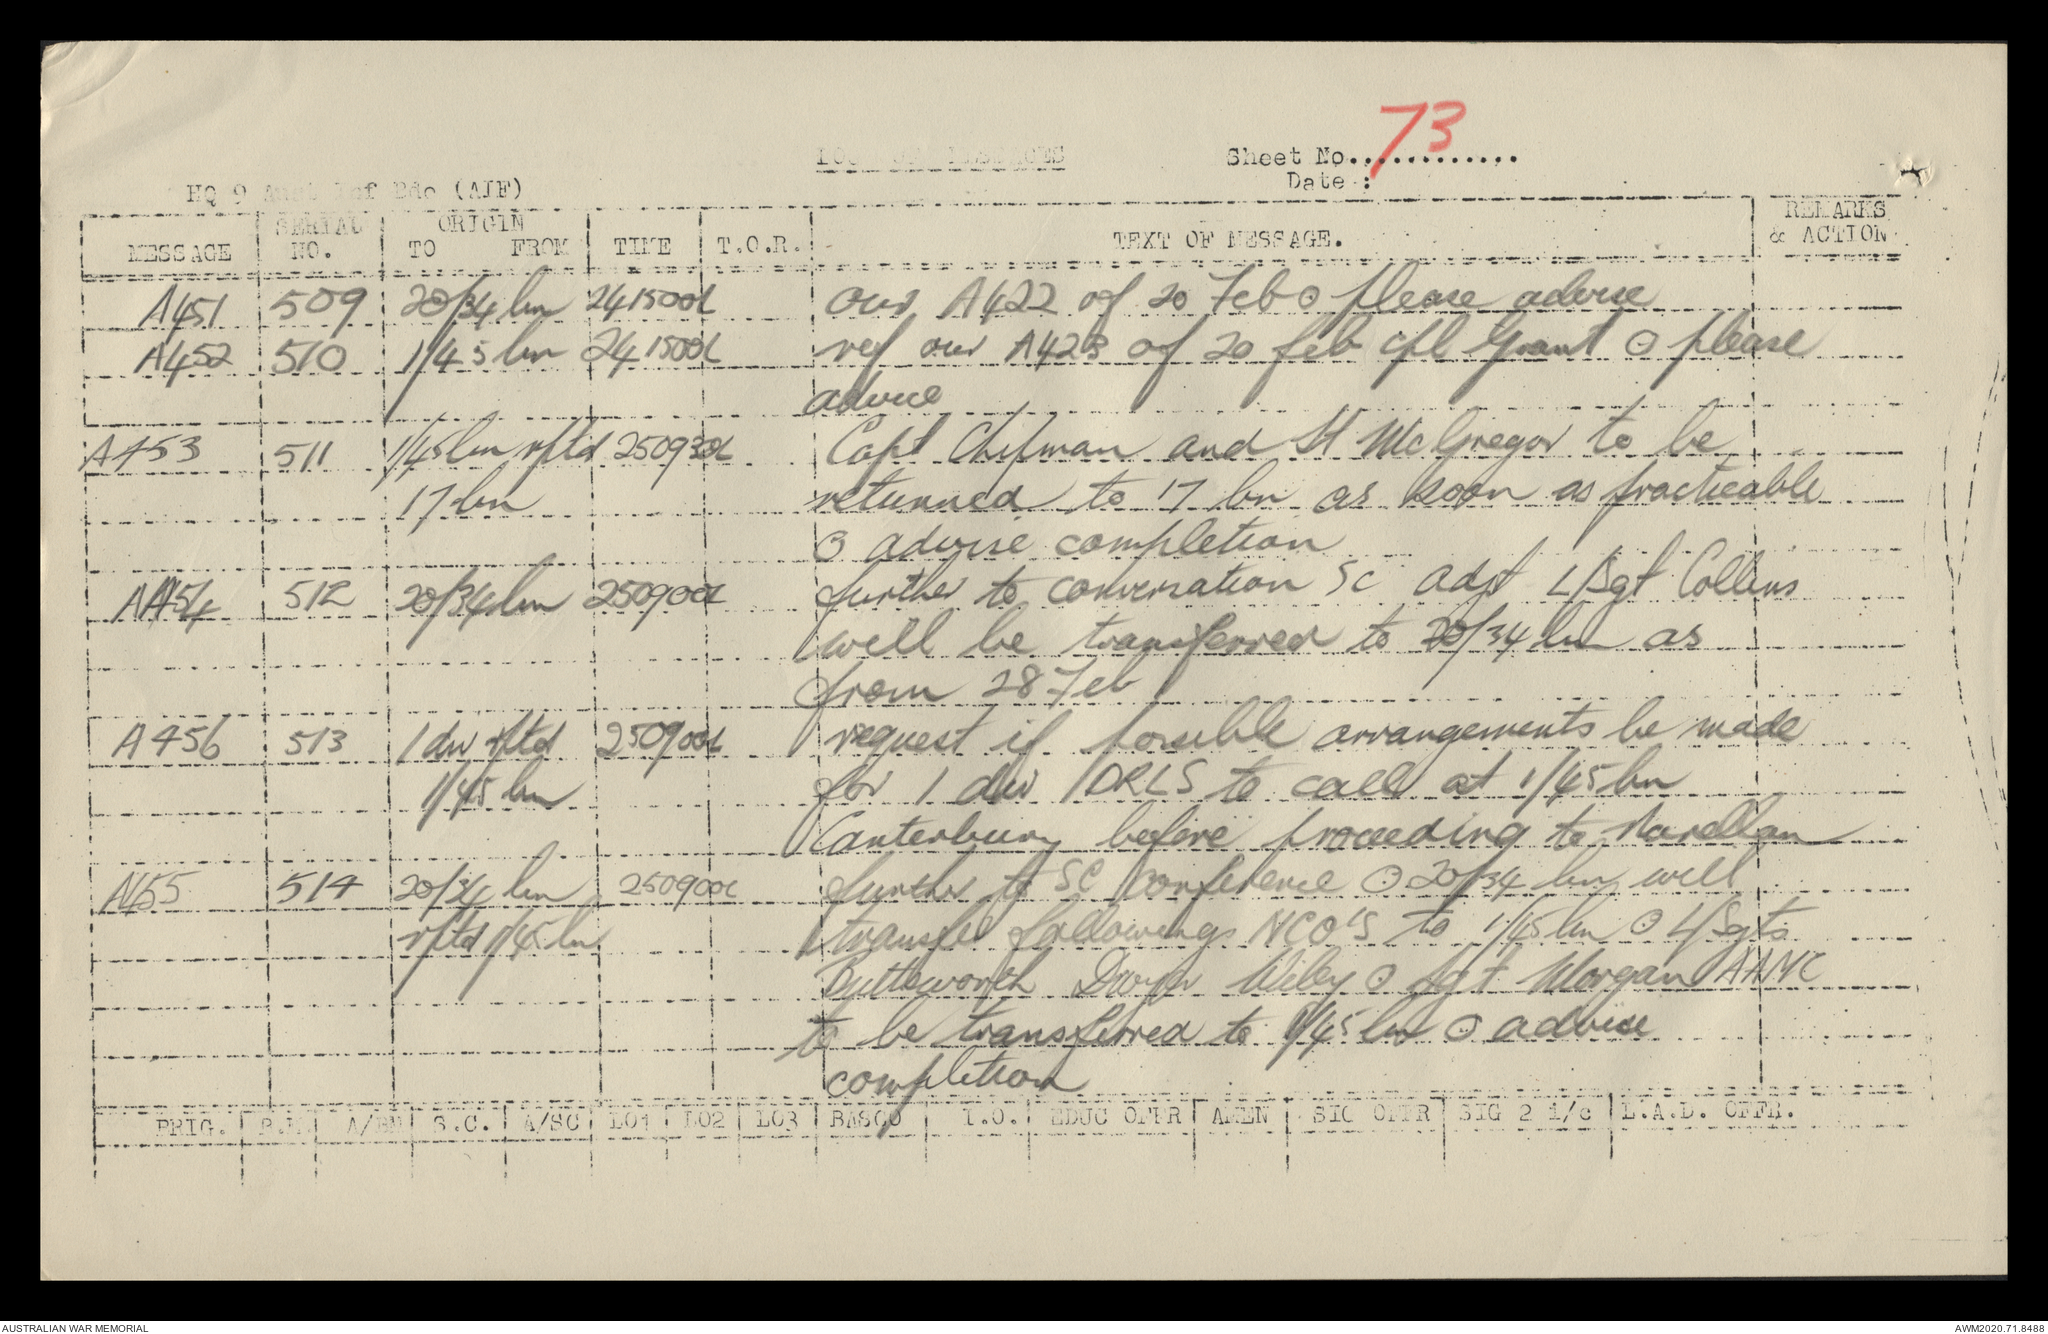 73
LOG OF MESSAGES
Sheet No.............
Date :
HQ 9 Aust Inf Bde (AIF)
MESSAGE SERIAL NO. ORIGIN TO FROM TIME T.O.R. TEXT OF MESSAGE. REMARKS & ACTION
A451 509 20/34 bn 241500L our A422 of 20 Feb ⊙ please advise
A452 510 1/45 bn 241500L ref our A423 of 20 feb cpl Grant ⊙ please
advice
A453 511 1/45 bn rptd 250930L Capt Chipman and Lt McGregor to be
17 bn returned to 17 bn as soon as practicable
⊙ advise completion
AA454 512 20/34 bn 250900L further to conversation SC adjt L/Sgt Collins
will be transferred to 20/34 bn as
from 28 Feb
A456 513 1 div rptd 250900L request if possible arrangements be made
1/45 bn for 1 div DRLS to call at 1/45 bn
Canterbury before proceeding to Narellan
A455 514 20/34 bn 250900L further to SC conference ⊙ 20/34 bn will
rptd 1/45 bn transfer followings NCO'S to 1/45 bn ⊙ L/Sgts
Butterworth Dwyer Wiley ⊙ Sgt Morgan AAMC
to be transferred to 1/45 bn ⊙ advise
completion
BRIG. B.M. A/BM S.C. A/SC LO1 LO2 LO3 BASCO I.O. EDUC OFFR AMEN SIG OFFR SIG 2 i/c L.A.D. OFFR.
AUSTRALIAN WAR MEMORIAL
AWM2020.71.8488